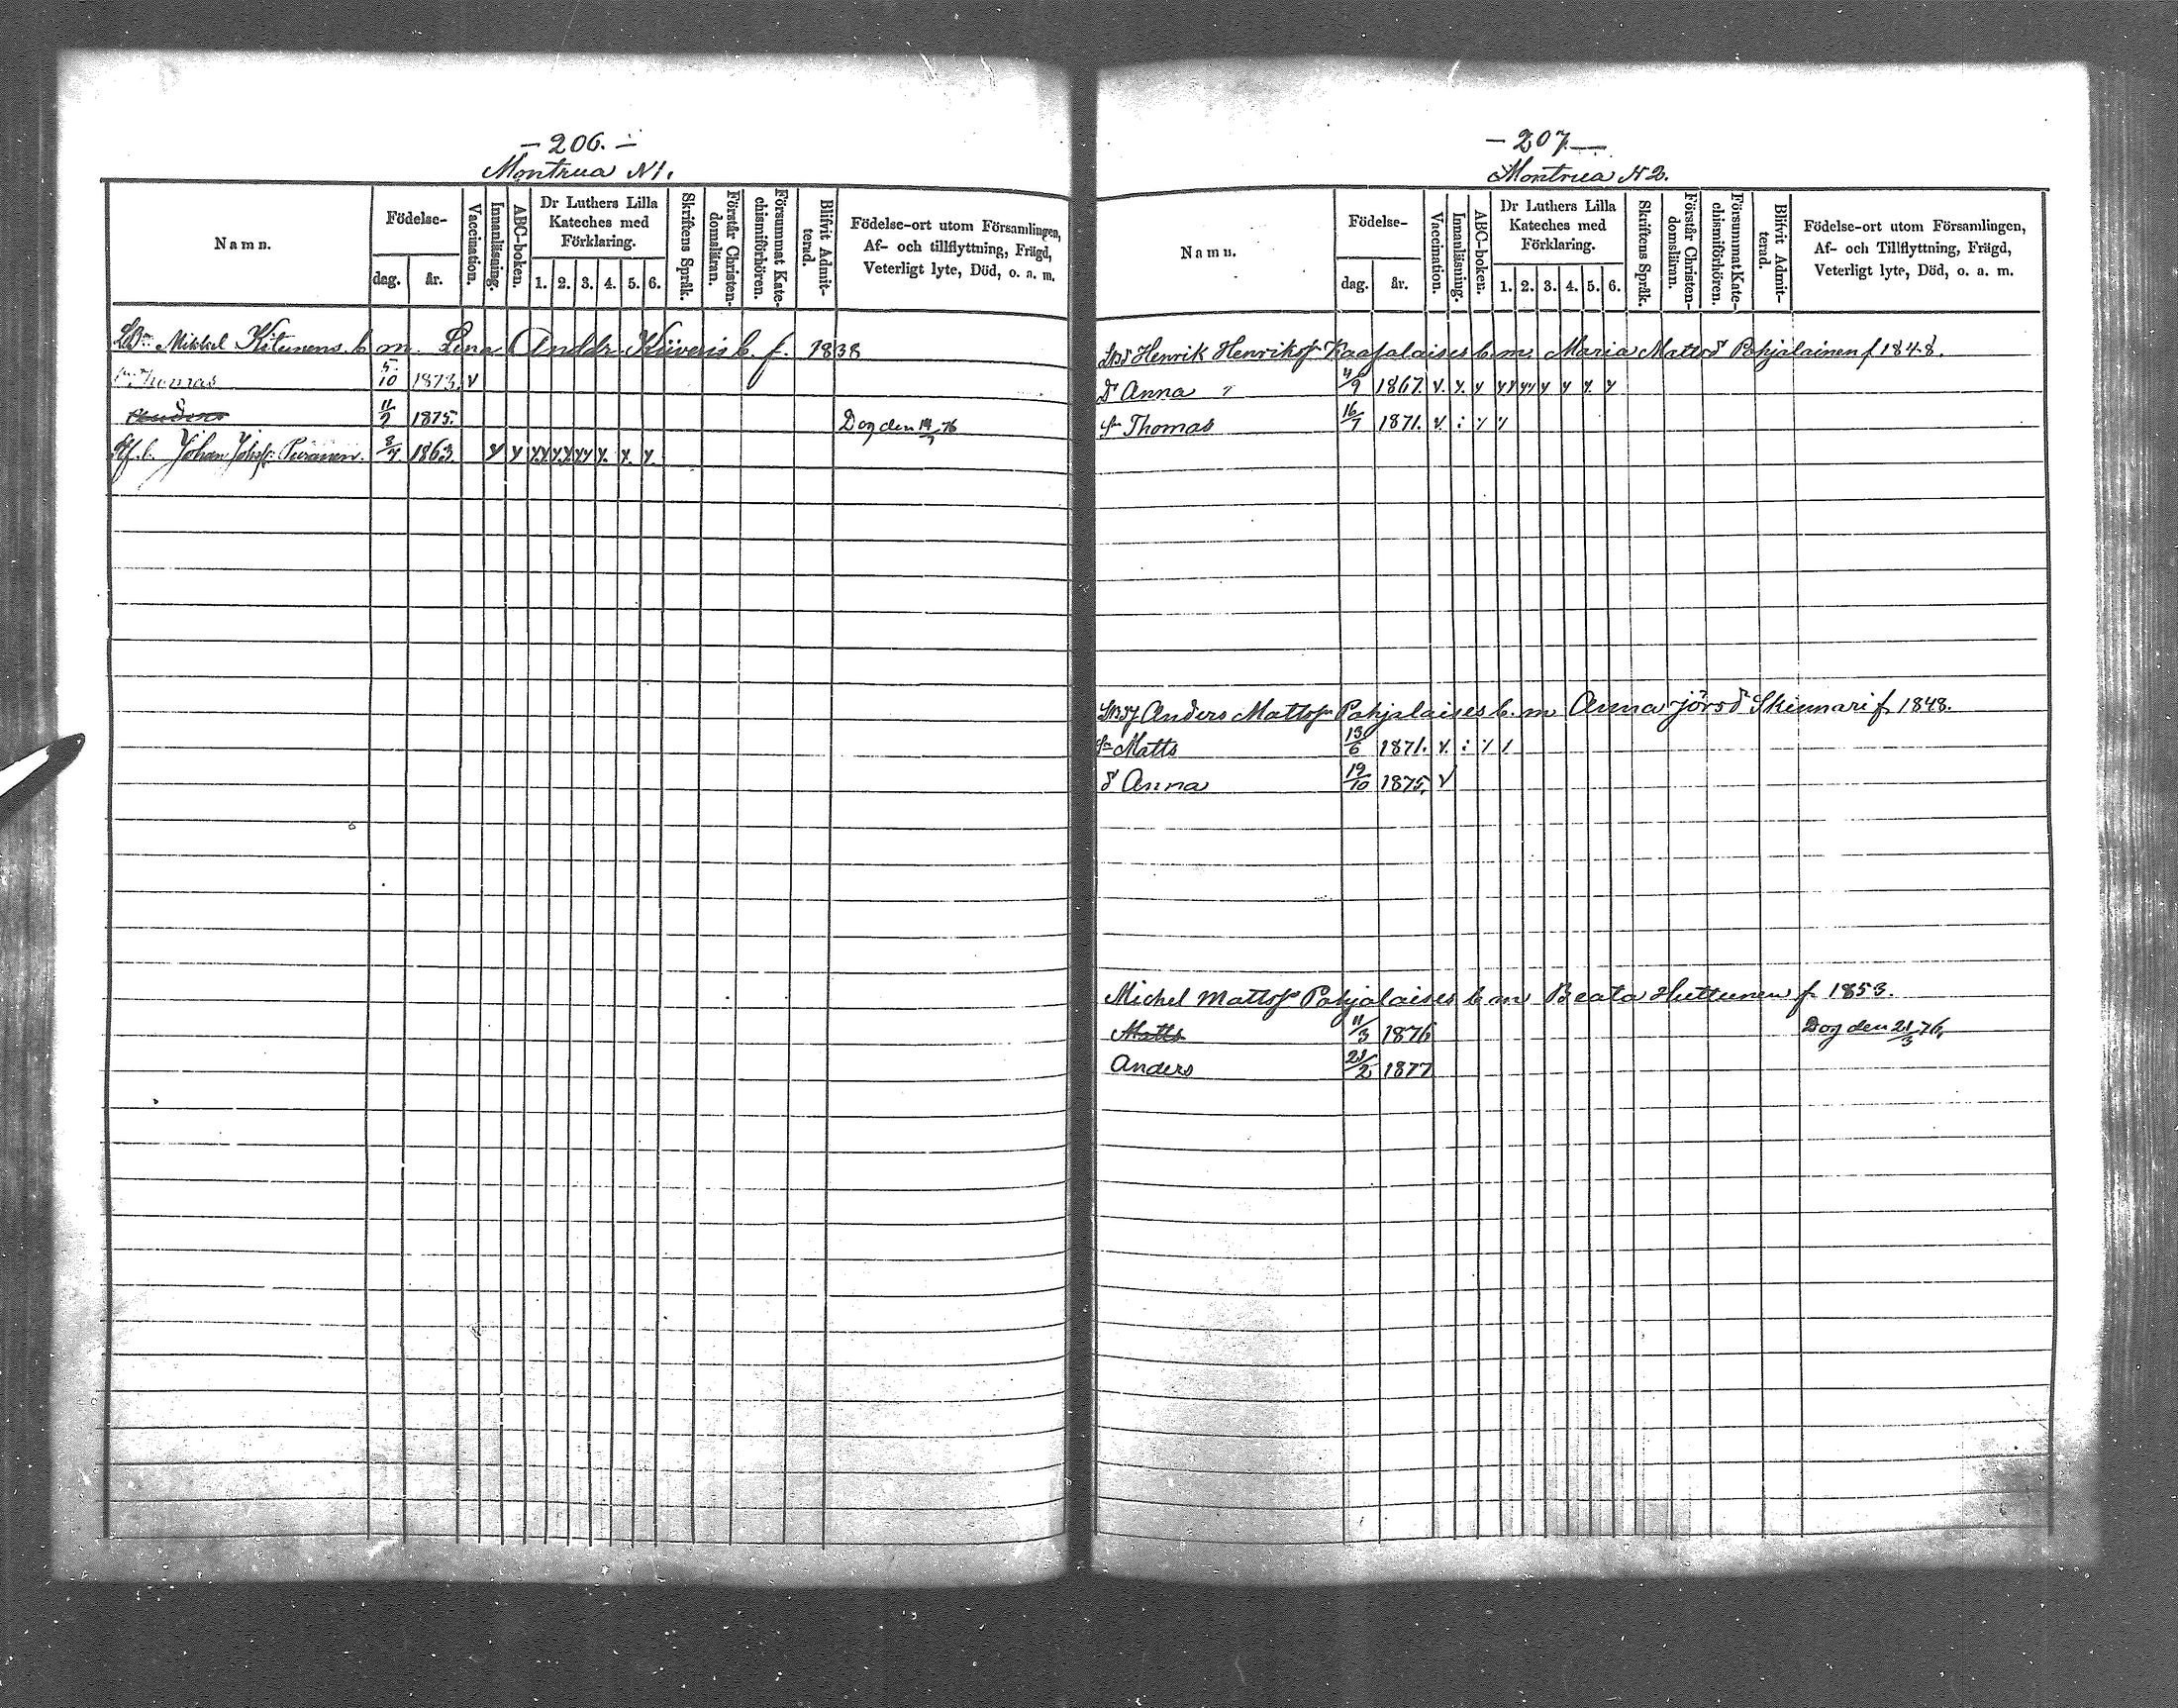 - 206. -
Montrua N1.
Namn.
Födelse-
dag.
år.
Vaccination.
Innanläsning.
ABC-boken.
Dr Luthers Lilla
Kateches med
Förklaring.
1. 2. 3. 4. 5. 6.
Skriftens Språk.
Förstår Christen-
domsläran.
Försummat Kate-
chismiförhören.
Blifvit Admit-
terad.
Födelse-ort utom Församlingen,
Af- och tillflyttning, Frägd,
Veterligt lyte, Död, o. a. m.
Mikkel Kitunens b. m. Lena Anddr Kiiveris b. f. 1838
Thomas 5/10 1873. v
11/9 1875. Dog den 76
Johan Johsf. Piiranen. 3/7 1863.
- 207. -
Montrua N2.
Namn.
Födelse-
dag.
år.
Vaccination.
Innanläsning.
ABC-boken.
Dr Luthers Lilla
Kateches med
Förklaring.
1. 2. 3. 4. 5. 6.
Skriftens Språk.
Förstår Christen-
domsläran.
Försummat Kate-
chismiförhören.
Blifvit Admit-
terad.
Födelse-ort utom Församlingen,
Af- och Tillflyttning, Frägd,
Veterligt lyte, Död, o. a. m.
Henrik Henriksf. b. m. Maria Mattsd Pohjalainen f 1848.
d Anna " 1867.
sn Thomas 16/7 1871.
Anders Mattsf Pohjalaises b. m Anna Jörsd Skinnari f 1848.
sn Matts 13/6 1871.
d Anna 19/10 1875. v
Michel Mattsf Pohjalaises b m Beata Huttunen f 1853.
Matts 11/3 1876 Dog den 21/3 76.
Anders 1877